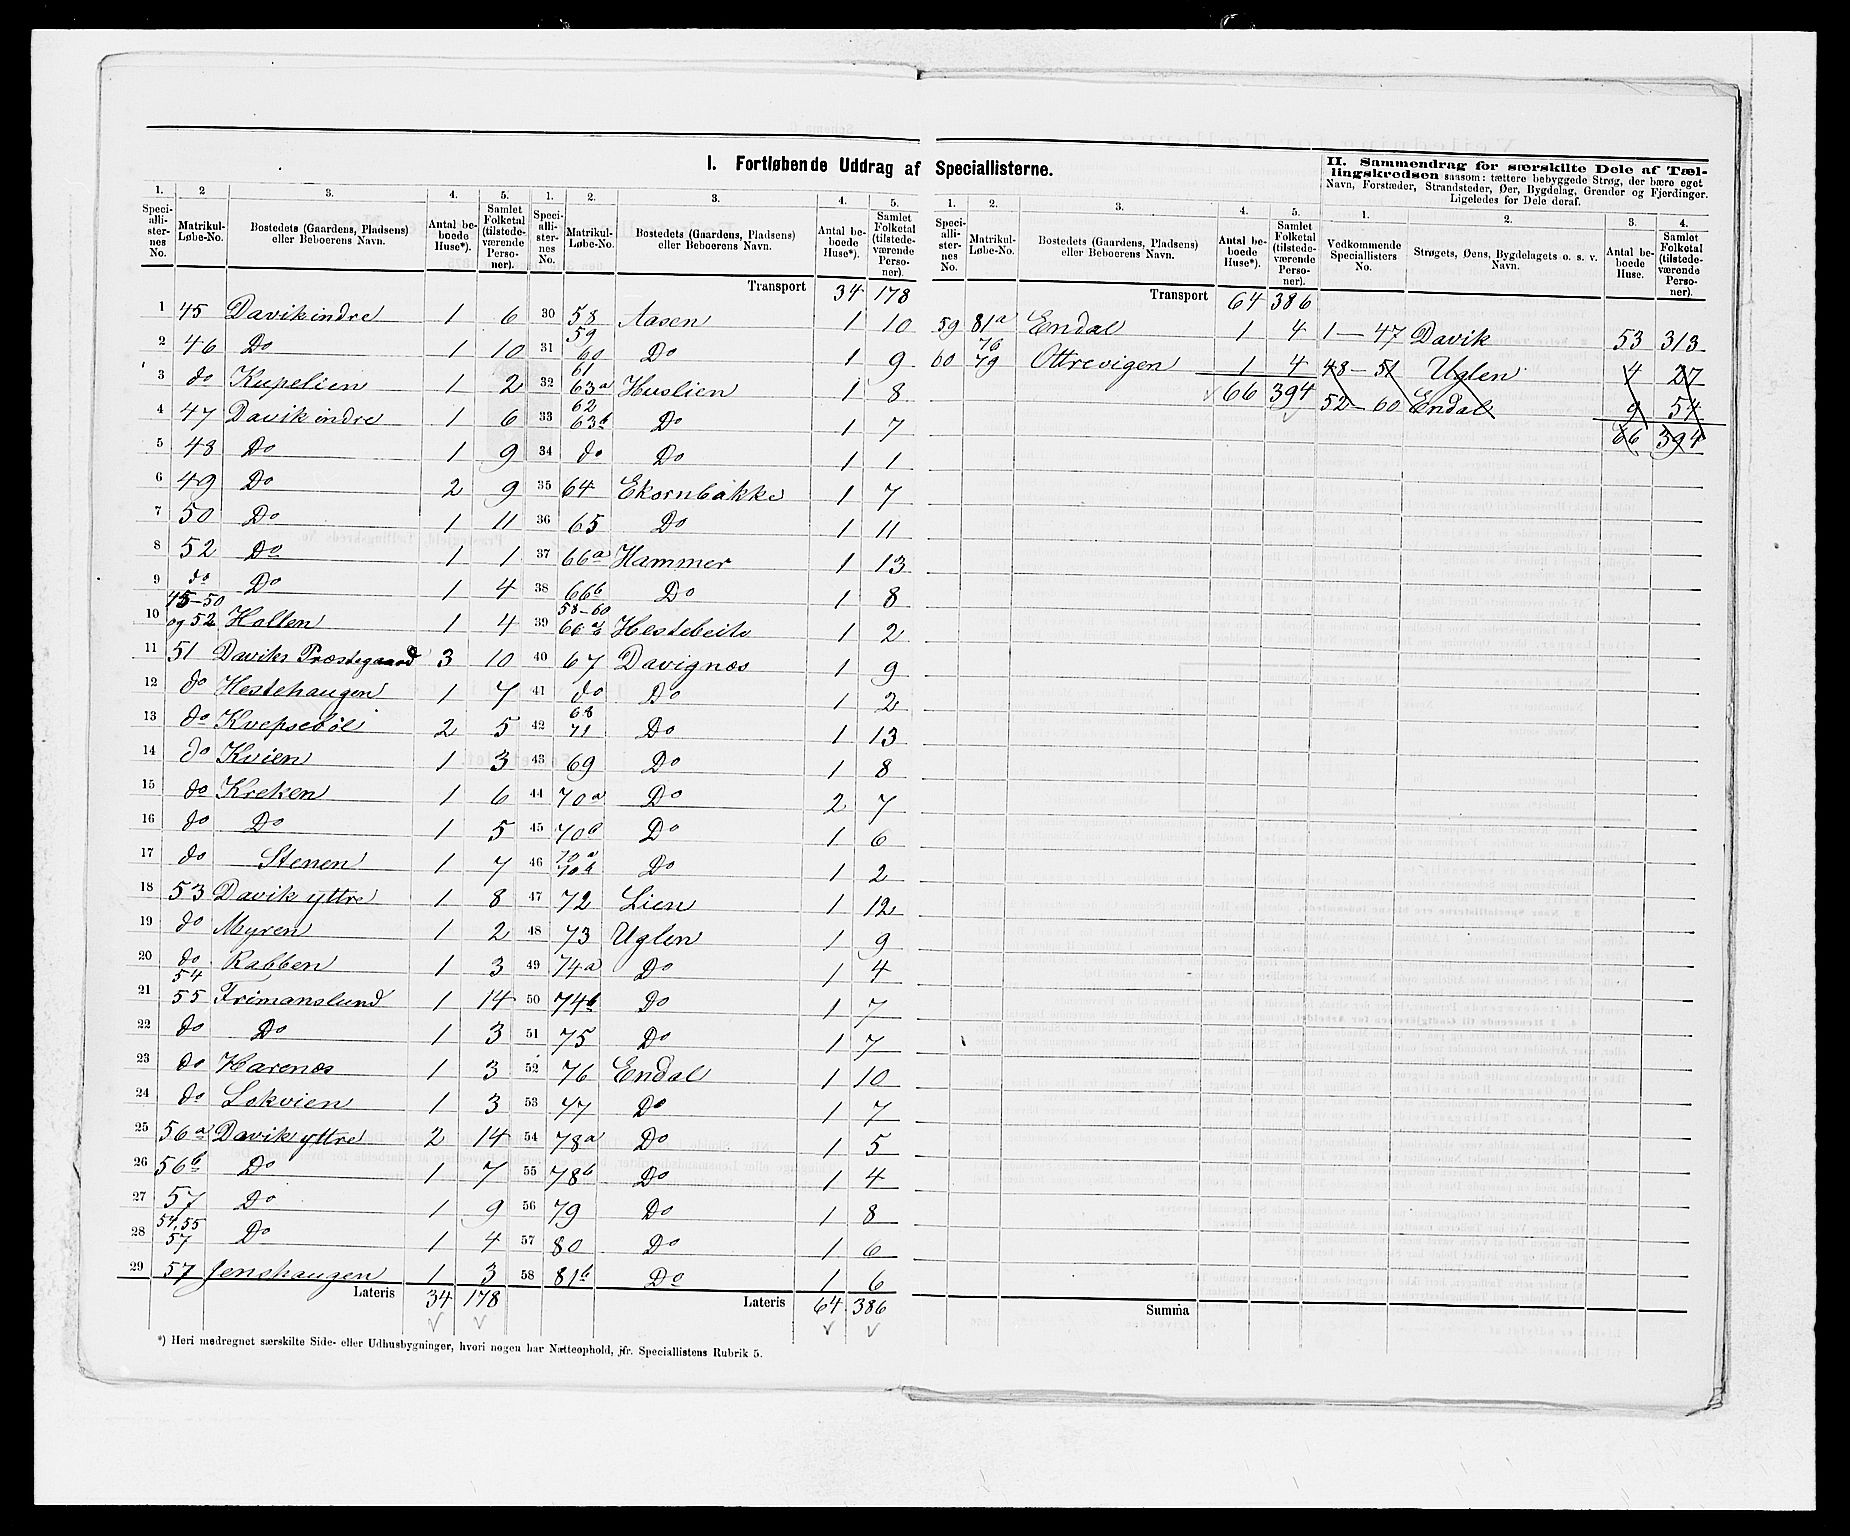 I. Fortløbende Uddrag af Speciallisterne.
II. Sammendrag for særskilte Dele af Tæl-
lingskredsen saasom: tættere bebyggede Strøg, der bære eget
Navn, Forstæder, Strandsteder, Øer, Bygdelag, Grender og Fjerdinger.
Ligeledes for Dele deraf.
1. 2 3. 4. 5.
Speci-alli-ster-nes No. Matrikul-Løbe-No. Bostedets (Gaardens, Pladsens) eller Beboerens Navn. Antal be-boede Huse*). Samlet Folketal (tilstede-værende Perso-ner).
1 45 Davik indre 1 6
2 46 Do 1 10
3 do Kupelien 1 2
4 47 Davik indre 1 6
5 48 Do 1 9
6 49 Do 2 9
7 50 Do 1 11
8 52 Do 1 1
9 do Do 1 4
10 45-50 og 52 Holten 1 4
11 51 Daviks Præstegaard 3 10
12 do Hestehaugen 1 7
13 do Kvepsebøl 2 5
14 do Kvien 1 3
15 do Kreken 1 6
16 do Do 1 5
17 do Stenen 1 7
18 53 Davik yttre 1 8
19 do Myren 1 2
20 do Rabben 1 3
21 54 55 Frimanslund 1 14
22 do Do 1 3
23 do Harenæs 1 3
24 do Lokvien 1 3
25 56a Davik yttre 2 14
26 56b Do 1 7
27 57 Do 1 9
28 54,55 57 Do 1 4
29 57 Jenshaugen 1 3
Lateris 34 178
1. 2. 3. 4. 5.
Speci-alli-ster-nes No. Matrikul-Løbe-No. Bostedets (Gaardens, Pladsens) eller Beboerens Navn. Antal be-boede Huse*). Samlet Folketal (tilstede-værende Perso-ner).
Transport 34 178
30 58 Aasen 1 10
31 59 60 Do 1 9
32 61 63a Huslien 1 8
33 62 63b Do 1 7
34 do Do 1 1
35 64 Ekornbakke 1 7
36 65 Do 1 11
37 66a Hammer 1 13
38 66b Do 1 8
39 58-60 66 ab Hestebeite 1 2
40 67 Davignæs 1 9
41 do Do 1 2
42 68 71 Do 1 13
43 69 Do 1 8
44 70a Do 2 7
45 70b Do 1 6
46 70a 70b Do 1 2
47 72 Lien 1 12
48 73 Uglen 1 9
49 74a Do 1 4
50 74b Do 1 7
51 75 Do 1 7
52 76 Endal 1 10
53 77 Do 1 7
54 78a Do 1 5
55 78b Do 1 4
56 79 Do 1 8
57 80 Do 1 6
58 81b Do 1 6
Lateris 64 386
1. 2. 3. 4. 5.
Speci-alli-ster-nes No. Matrikul-Løbe-No. Bostedets (Gaardens, Pladsens) eller Beboerens Navn. Antal be-boede Huse*). Samlet Folketal (tilstede-værende Perso-ner).
Transport 64 386
59 81a Endal 1 4
60 76 79 Ottrevigen 1 4
66 394
Summa
1. 2. 3. 4.
Vedkommende Speciallisters No. Strøgets, Øens, Bygdelagets o. s. v. Navn. Antal be-boede Huse. Samlet Folketal (tilstede-værende Perso-ner).
1-47 Davik 53 313
48-51 Uglen 4 27
52-60 Endal 9 54
66 394
*) Heri medregnet særskilte Side- eller Udhusbygninger, hvori nogen har Natteophold, jfr. Speciallistens Rubrik 5.